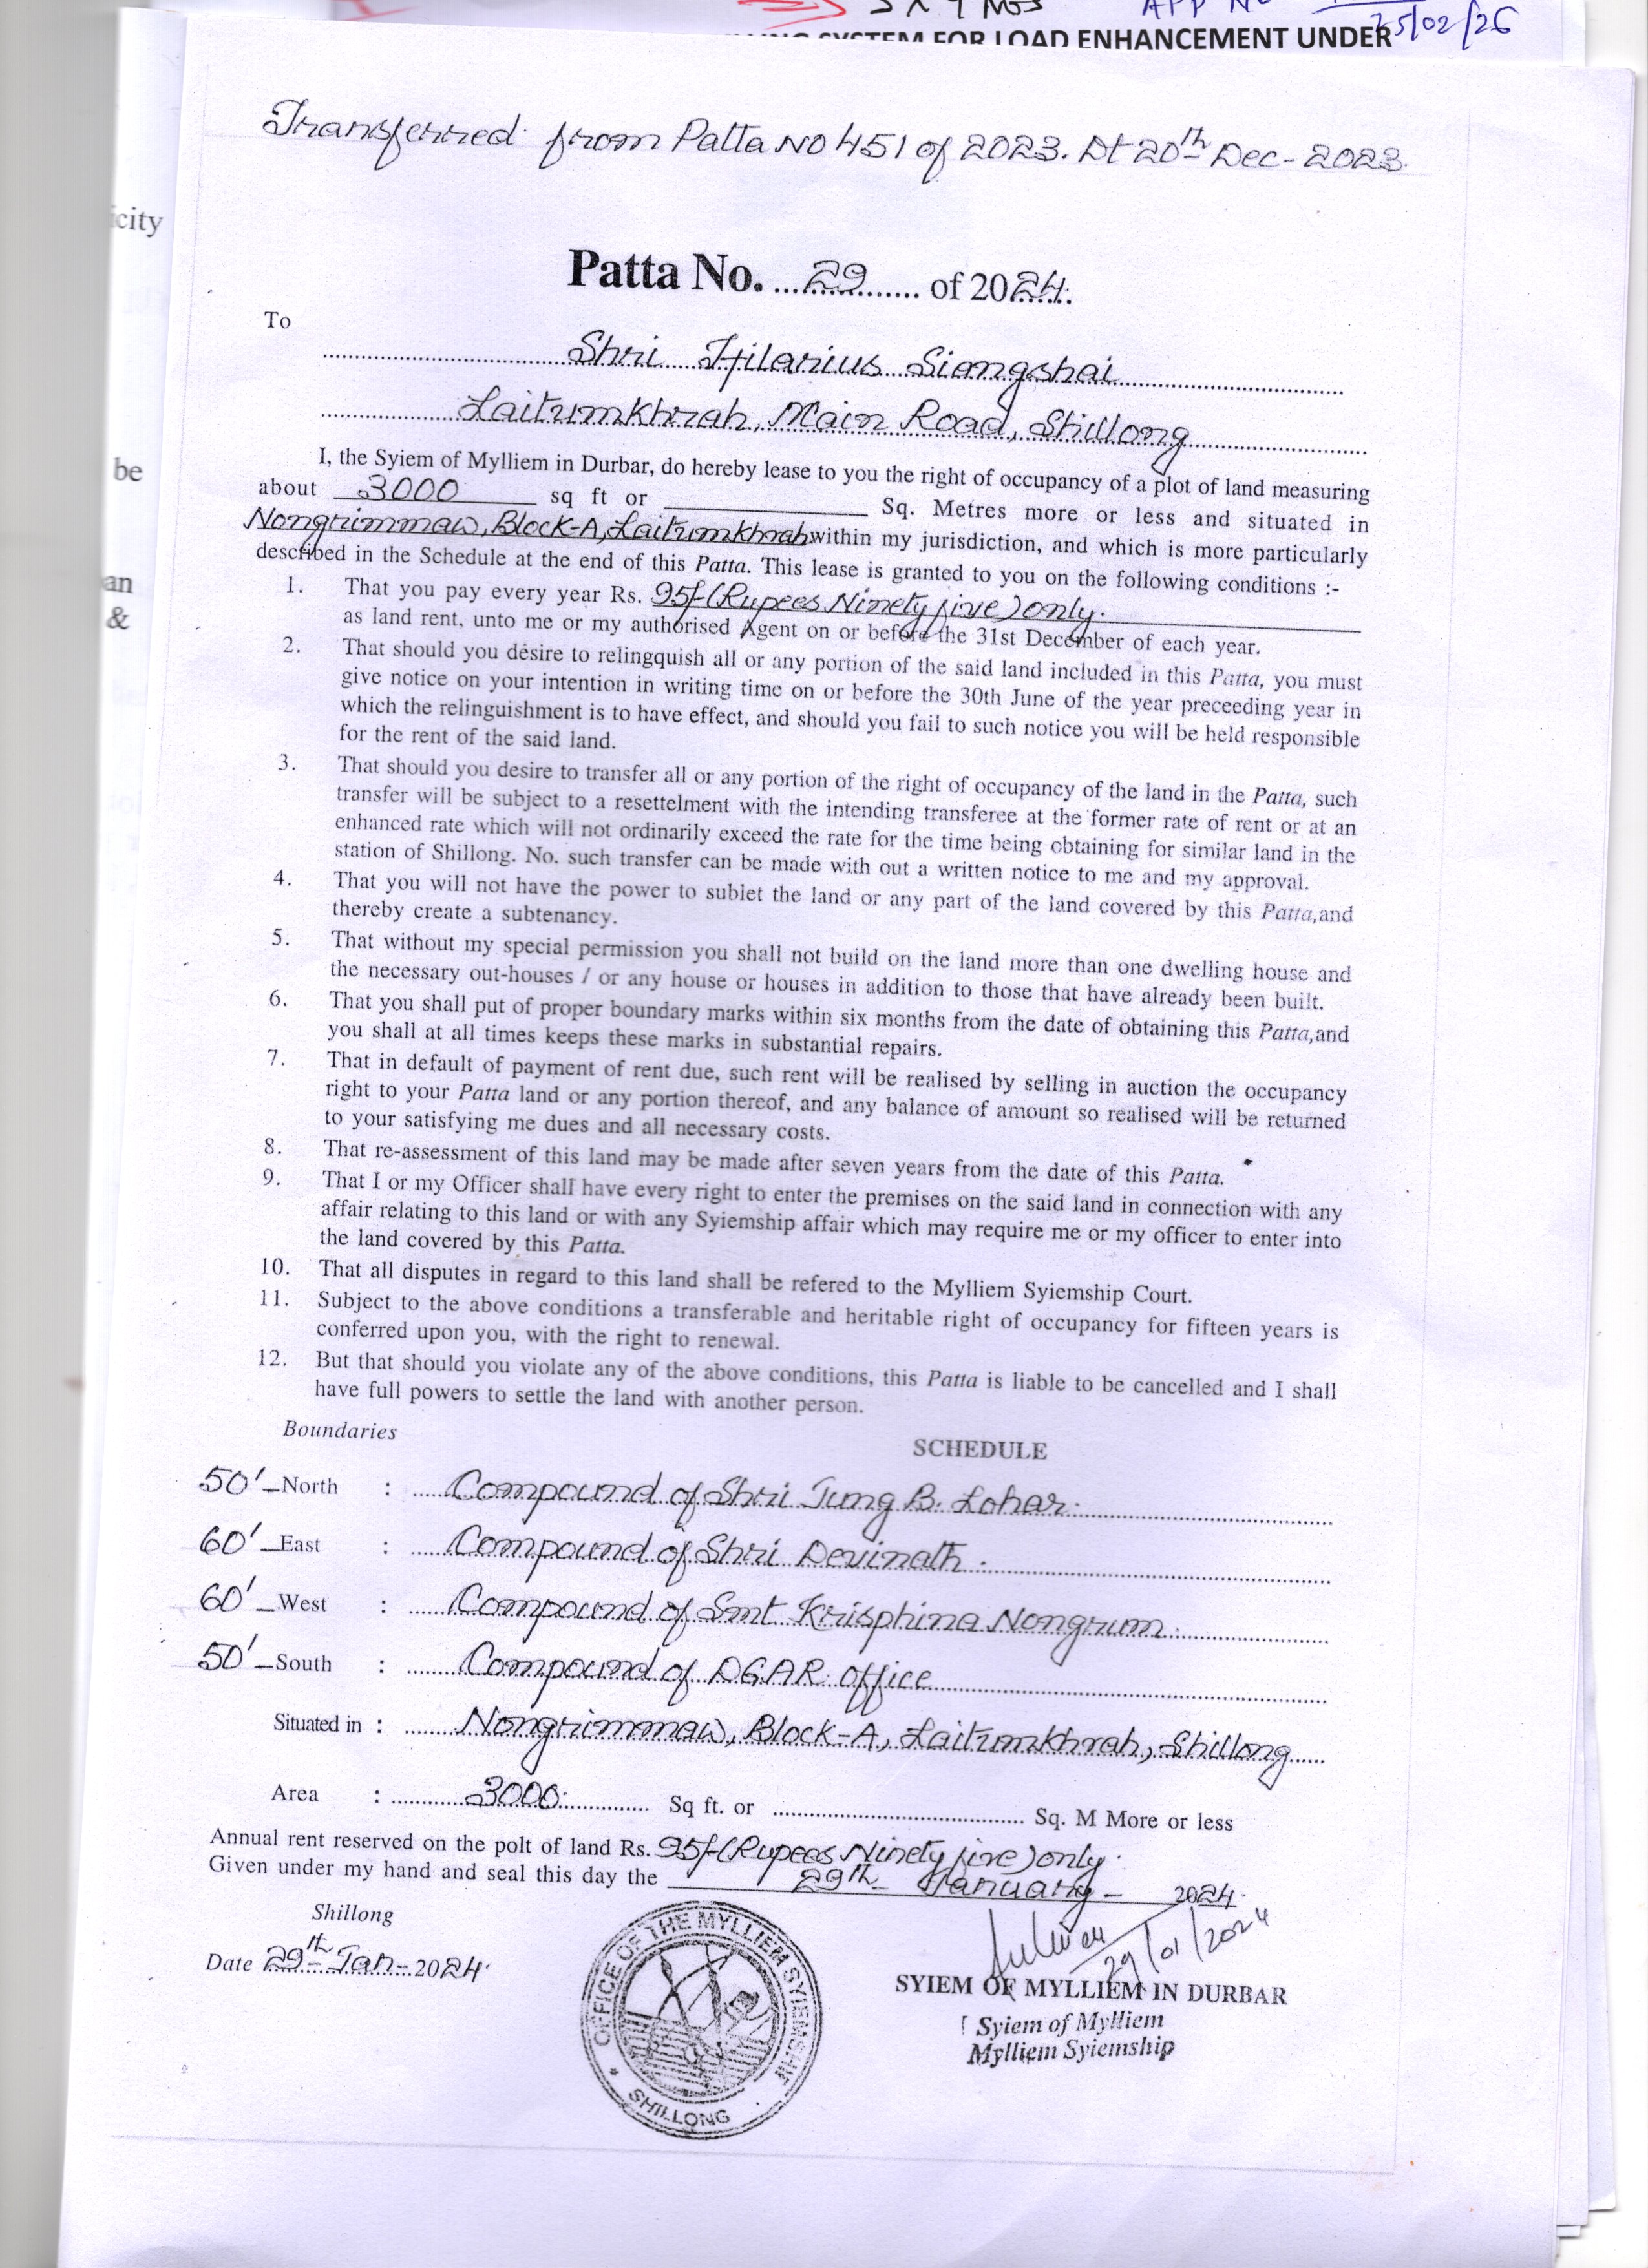 5 x 4 Nos APP No
25/02/26
SYSTEM FOR LOAD ENHANCEMENT UNDER
Transferred from Patta NO 451 of 2023. Dt 20th Dec - 2023.
icity
be
an
&
Patta No. 29 of 2024.
To
Shri Hilarius Siangshai
Laitumkhrah, Main Road, Shillong
I, the Syiem of Mylliem in Durbar, do hereby lease to you the right of occupancy of a plot of land measuring
about 3000 sq ft or ____________ Sq. Metres more or less and situated in
Nongrimmaw, Block-A, Laitumkhrah within my jurisdiction, and which is more particularly
described in the Schedule at the end of this Patta. This lease is granted to you on the following conditions :-
1. That you pay every year Rs. 95/-(Rupees Ninety five) only.
as land rent, unto me or my authorised Agent on or before the 31st December of each year.
2. That should you desire to relingquish all or any portion of the said land included in this Patta, you must
give notice on your intention in writing time on or before the 30th June of the year preceeding year in
which the relinguishment is to have effect, and should you fail to such notice you will be held responsible
for the rent of the said land.
3. That should you desire to transfer all or any portion of the right of occupancy of the land in the Patta, such
transfer will be subject to a resettelment with the intending transferee at the former rate of rent or at an
enhanced rate which will not ordinarily exceed the rate for the time being obtaining for similar land in the
station of Shillong. No. such transfer can be made with out a written notice to me and my approval.
4. That you will not have the power to sublet the land or any part of the land covered by this Patta,and
thereby create a subtenancy.
5. That without my special permission you shall not build on the land more than one dwelling house and
the necessary out-houses / or any house or houses in addition to those that have already been built.
6. That you shall put of proper boundary marks within six months from the date of obtaining this Patta,and
you shall at all times keeps these marks in substantial repairs.
7. That in default of payment of rent due, such rent will be realised by selling in auction the occupancy
right to your Patta land or any portion thereof, and any balance of amount so realised will be returned
to your satisfying me dues and all necessary costs.
8. That re-assessment of this land may be made after seven years from the date of this Patta.
9. That I or my Officer shall have every right to enter the premises on the said land in connection with any
affair relating to this land or with any Syiemship affair which may require me or my officer to enter into
the land covered by this Patta.
10. That all disputes in regard to this land shall be refered to the Mylliem Syiemship Court.
11. Subject to the above conditions a transferable and heritable right of occupancy for fifteen years is
conferred upon you, with the right to renewal.
12. But that should you violate any of the above conditions, this Patta is liable to be cancelled and I shall
have full powers to settle the land with another person.
Boundaries
SCHEDULE
50' - North : Compound of Shri Tung B. Lohar.
60' - East : Compound of Shri Devinath.
60' - West : Compound of Smt Krisphina Nongrum.
50' - South : Compound of DGAR office
Situated in : Nongrimmaw, Block-A, Laitumkhrah, Shillong
Area : 3000 Sq ft. or ............ Sq. M More or less
Annual rent reserved on the polt of land Rs. 95/-(Rupees Ninety five) only.
Given under my hand and seal this day the 29th January - 2024.
Shillong
Date 29th Jan - 2024.
OFFICE OF THE MYLLIEM SYIEMSHIP
SHILLONG
29/01/2024
SYIEM OF MYLLIEM IN DURBAR
Syiem of Mylliem
Mylliem Syiemship